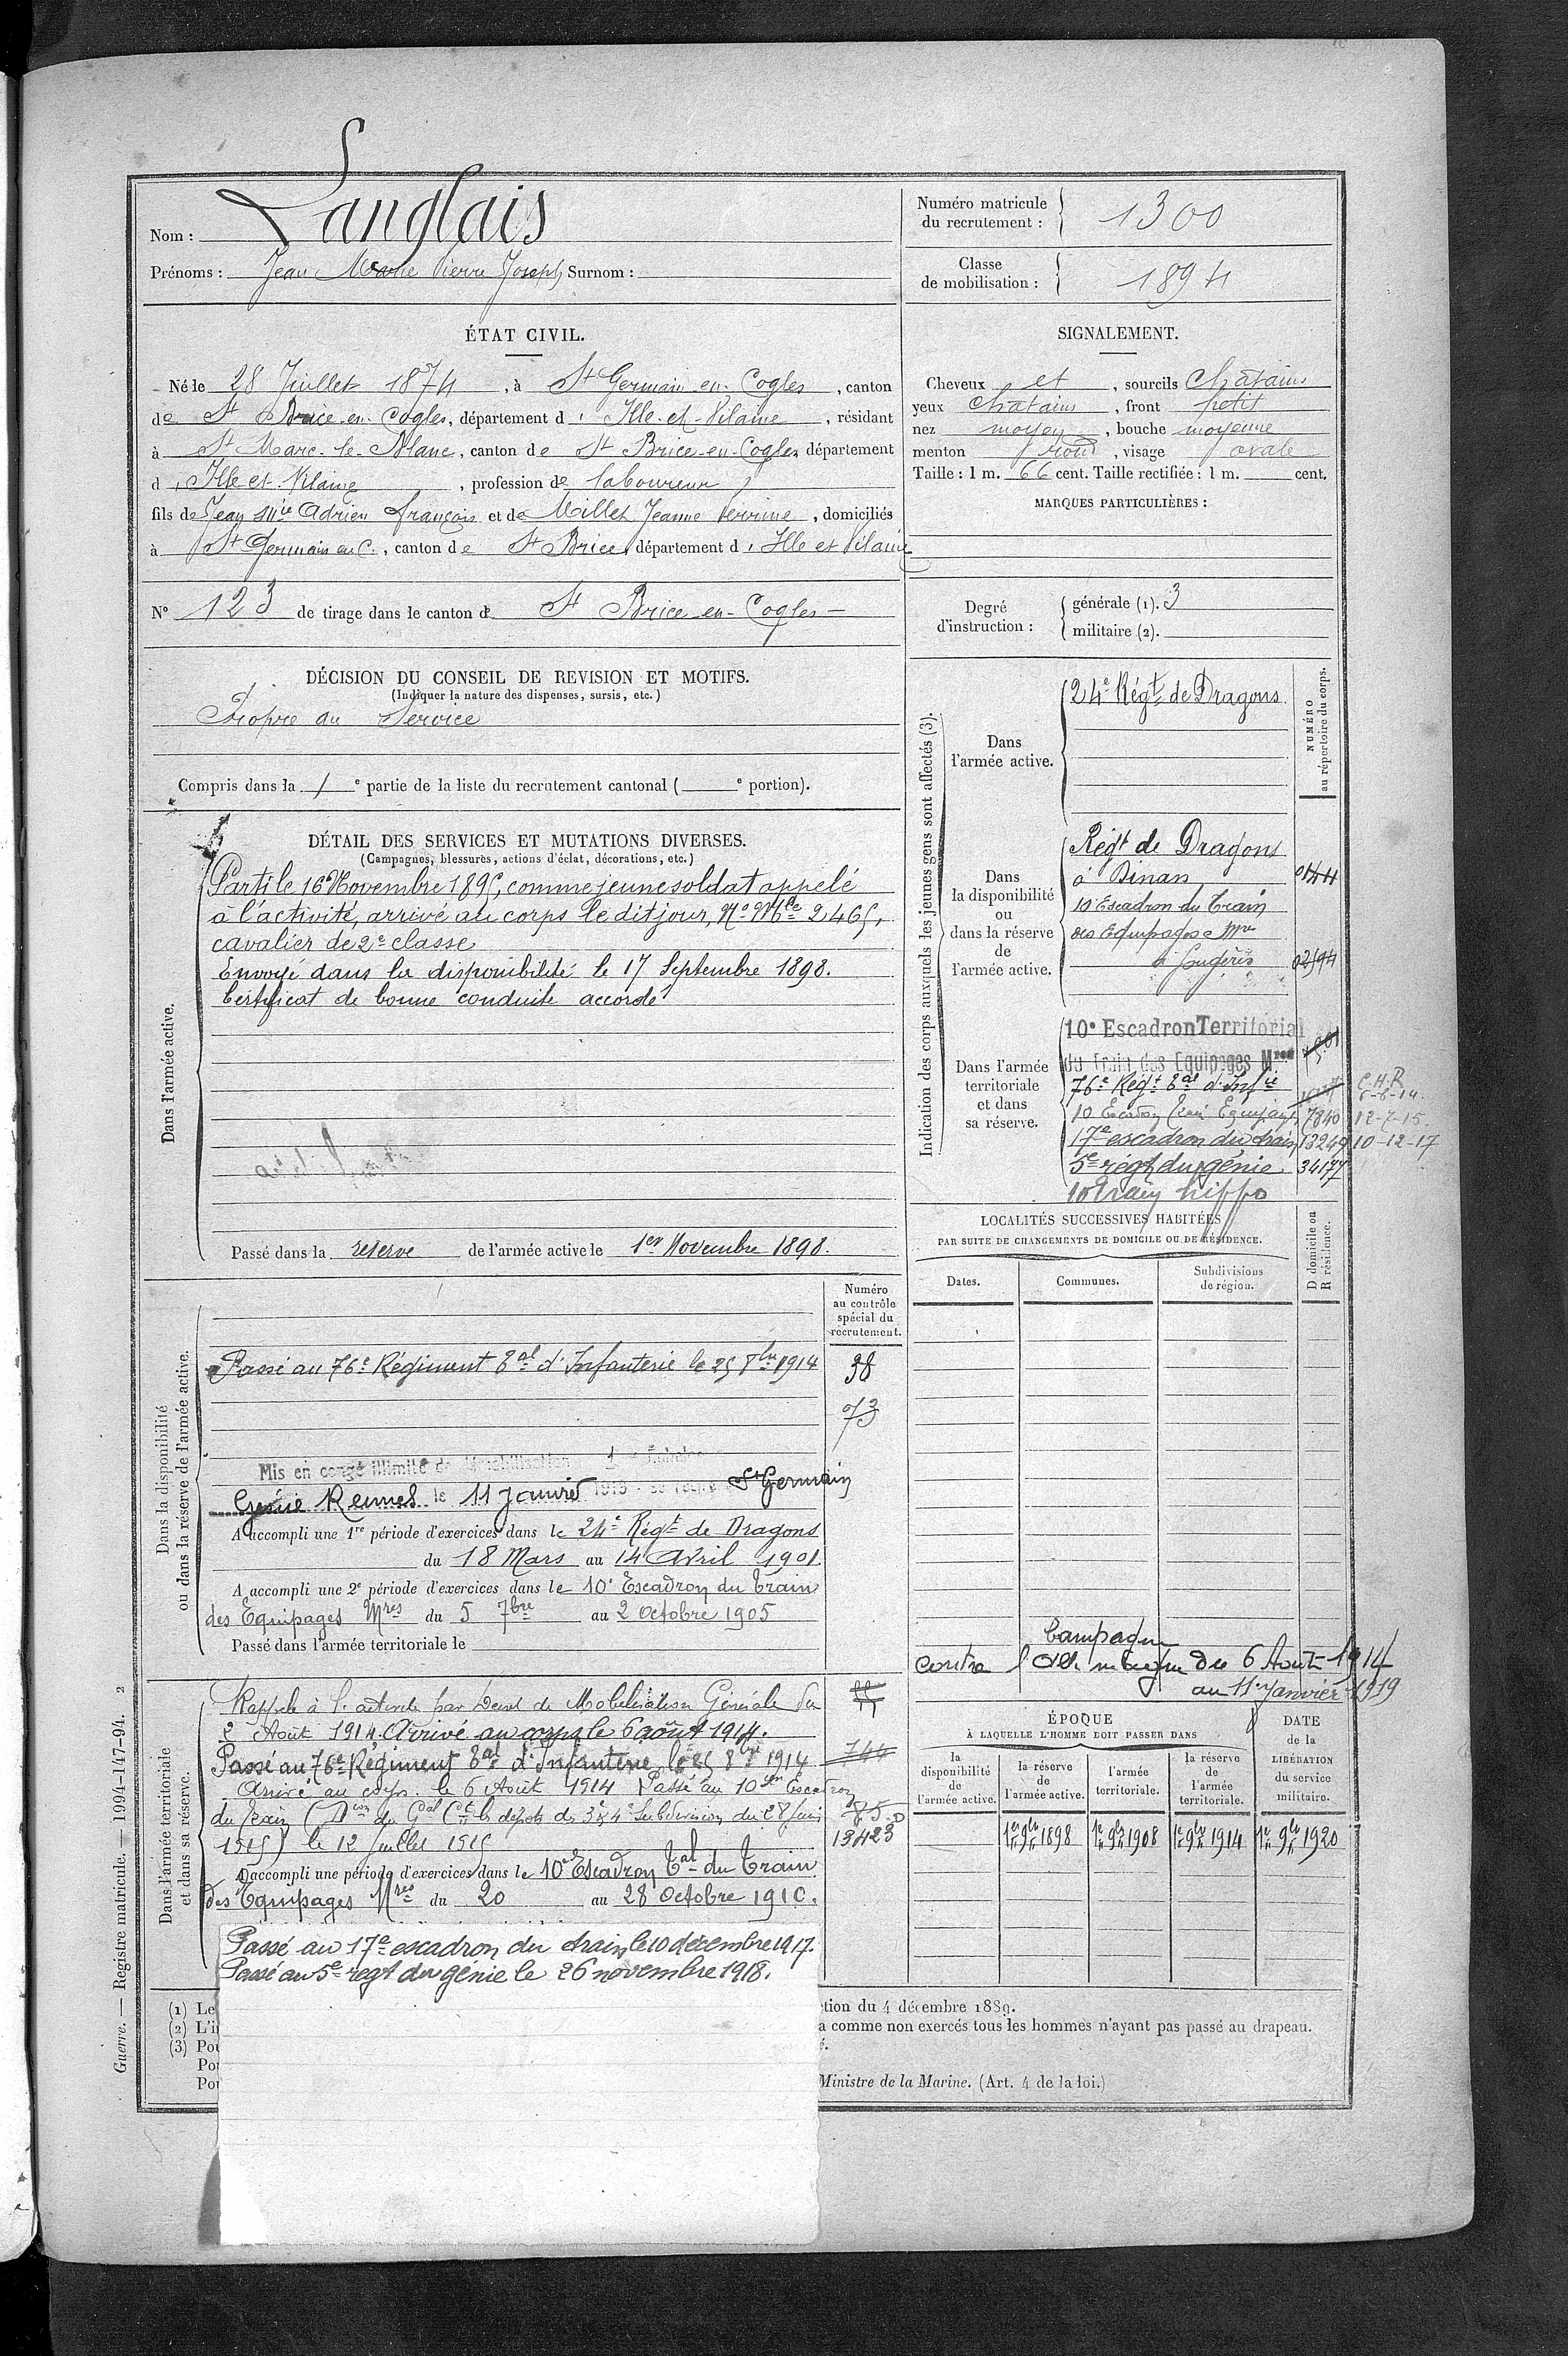 Nom : Langlais
Prénoms : Jean Marie Pierre Joseph Surnom :
Numéro matricule du recrutement : 1300
Classe de mobilisation : 1894
ÉTAT CIVIL.
Né le 28 Juillet 1874, à St Germain en Cogles, canton
de St Brice en Cogles, département d'Ille-et-Vilaine, résidant
à St Marc-le-Blanc, canton de St Brice-en-Cogles, département
d'Ille et Vilaine, profession de laboureur
fils de Jean Mie Adrien François et de Millet Jeanne Perrine, domiciliés
à St Germain en C., canton de St Brice, département d'Ille et Vilaine
N° 123 de tirage dans le canton de St Brice-en-Cogles
SIGNALEMENT.
Cheveux et, sourcils châtains
yeux châtains, front petit
nez moyen, bouche moyenne
menton rond, visage ovale
Taille : 1 m. 66 cent. Taille rectifiée : 1 m. cent.
MARQUES PARTICULIÈRES :
Degré d'instruction : générale (1). 3
militaire (2).
DÉCISION DU CONSEIL DE REVISION ET MOTIFS.
(Indiquer la nature des dispenses, sursis, etc.)
Propre au Service
Compris dans la 1e partie de la liste du recrutement cantonal ( e portion).
DÉTAIL DES SERVICES ET MUTATIONS DIVERSES.
(Campagnes, blessures, actions d'éclat, décorations, etc.)
Dans l'armée active.
Parti le 16 Novembre 1895, comme jeune soldat appelé
à l'activité, arrivé au corps le dit jour, No Mle 2465,
cavalier de 2e classe
Envoyé dans la disponibilité le 17 Septembre 1898.
Certificat de bonne conduite accordé
Passé dans la réserve de l'armée active le 1er Novembre 1898.
Indication des corps auxquels les jeunes gens sont affectés (3).
NUMÉRO au répertoire du corps.
Dans l'armée active.
24e Régt de Dragons
Dans la disponibilité ou dans la réserve de l'armée active.
Régt de Dragons
à Dinan
10e Escadron du Train
des Equipages Mres
à Fougères
Dans l'armée territoriale et dans sa réserve.
10e Escadron Territorial
du Train des Equipages Mres
76e Régt Tal d'Infie
10 Escadron Train Equipages 7840 12-7-15
17e escadron du train 13249 10-12-17
5e régt du génie 34177
10 Train hippo
LOCALITÉS SUCCESSIVES HABITÉES
PAR SUITE DE CHANGEMENTS DE DOMICILE OU DE RÉSIDENCE.
Dates.
Communes.
Subdivisions de région.
D domicile ou R résidence.
Dans la disponibilité ou dans la réserve de l'armée active.
Numéro au contrôle spécial du recrutement.
Passé au 76e Régiment Tal d'Infanterie le 25 8bre 1914
38
73
Mis en congé illimité de démobilisation
Génie Rennes le 11 janvier 1919 se retire St Germain
A accompli une 1re période d'exercices dans le 24e Régt de Dragons
du 18 Mars au 14 Avril 1901
A accompli une 2e période d'exercices dans le 10e Escadron du Train
des Equipages Mres du 5 7bre au 2 Octobre 1905
Passé dans l'armée territoriale le
Campagne
contre l'Allemagne du 6 Août 1914
au 11 janvier 1919
Dans l'armée territoriale et dans sa réserve.
Rappelé à l'activité par Décret de Mobilisation Générale du
2 Août 1914. Arrivé au corps le 6 août 1914.
Passé au 76e Régiment Tal d'Infanterie le 25 8bre 1914
Arrivé au corps le 6 Août 1914 Passé au 10e Escadron
du Train (Don du Gal Ct les dépots des 3e & 4e Subdivisions du 28 Juin
1915) le 12 Juillet 1915
A accompli une période d'exercices dans le 10e Escadron Tal du Train
des Equipages Mres du 20 au 28 Octobre 1910.
744
13423
Passé au 17e escadron du train le 10 décembre 1917.
Passé au 5e régt du génie le 26 novembre 1918.
ÉPOQUE
À LAQUELLE L'HOMME DOIT PASSER DANS
la disponibilité de l'armée active.
la réserve de l'armée active.
l'armée territoriale.
la réserve de l'armée territoriale.
DATE de la LIBÉRATION du service militaire.
1er 9bre 1898
1er 9bre 1908
1er 9bre 1914
1er 9bre 1920
(1) Le
(2) L'i
(3) Pou
Pou
Pou
tion du 4 décembre 1889.
a comme non exercés tous les hommes n'ayant pas passé au drapeau.
Ministre de la Marine. (Art. 4 de la loi.)
Guerre. — Registre matricule. — 1994-147-94. 2